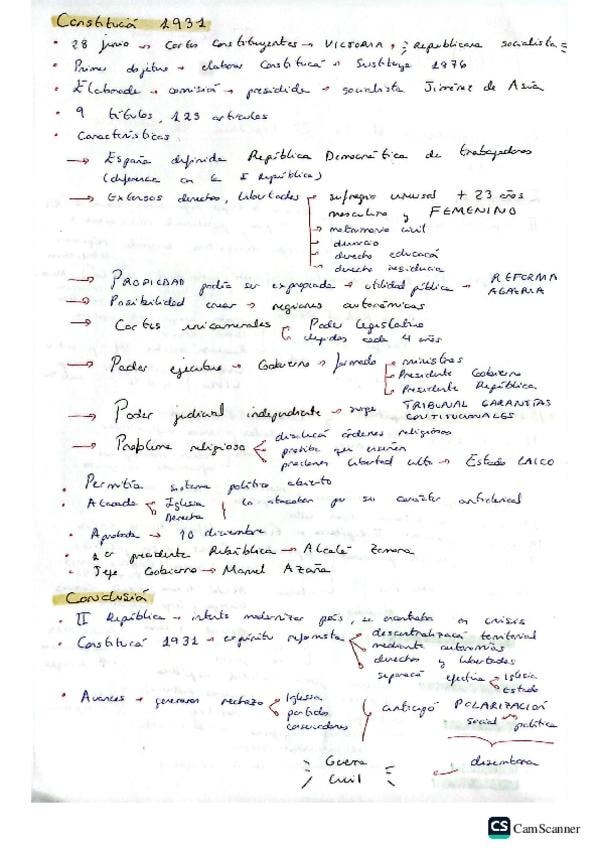 Constitució 1931
• 28 junio → Cortes Constituyentes → VICTORIA, Republicana socialista
• Primer objetivo → elaborar Constitució → Sustituye 1876
• Elaborada → comisión → presidida → socialista Jiménez de Asúa
• 9 títulos, 125 artículos
• Características
→ España definida República Democrática de trabajadores
(diferencia con I República)
→ Extensos derechos, libertades → sufragio universal + 23 años
masculino y FEMENINO
→ matrimonio civil
→ divorcio
→ derecho educació
→ derecho residencia
→ PROPIEDAD podía ser expropiada → utilidad pública → REFORMA
AGRARIA
→ Posibilidad crear → regiones autonómicas
→ Cortes unicamerales Poder Legislativo
elegidos cada 4 años
→ Poder ejecutivo → Gobierno → formado ministros
Presidente Gobierno
Presidente República
→ Poder judicial independiente → surge TRIBUNAL GARANTÍAS
CONTITUCIONALES
→ Problema religioso disolució órdenes religiosas
prohibe que enseñen
libertad culto → Estado LAICO
• Permitía sistema político abierto
• Atacada Iglesia la atacaban por su carácter anticlerical
Derecha
• Aprobada → 10 diciembre
• 1er presidente República → Alcalá Zamora
• Jefe Gobierno → Manuel Azaña
Conclusió
• II República → intento modernizar país, se encontraba en crisis
• Constitució 1931 → espíritu reformista descentralizació territorial
mediante autonomías
derechos y libertades
separació efectiva Iglesia
Estado
• Avances → generaron rechazo Iglesia anticipó POLARIZACIÓN
partidos social política
conservadores
Guerra desemboca
Civil
CS CamScanner